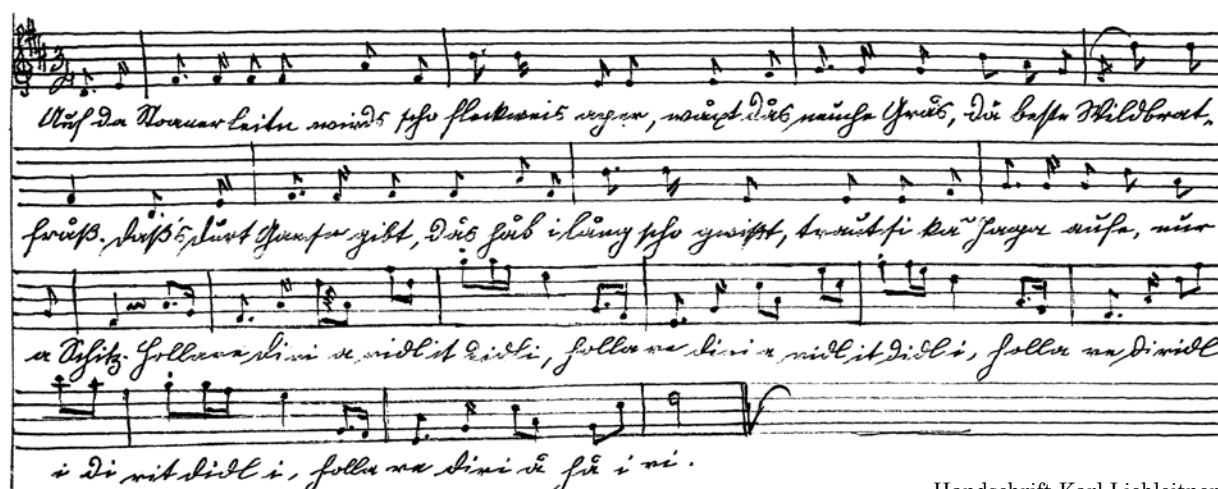 Auf da Stoanerleitn wirds scho fleckweis aper, wåxt dås neuche Grås, då beste Wildbrat-
fråß. Daß's durt Gamsn gibt, dås håb i lång scho gwißt, traut si ka Jaga aufe, nur
a Schitz. Hollare diri a ridl it didl i, holla re diri a ridl it didl i, holla re diridl
i di rit didl i, holla re diri å hå i ri.
Handschrift Karl Liebleitner